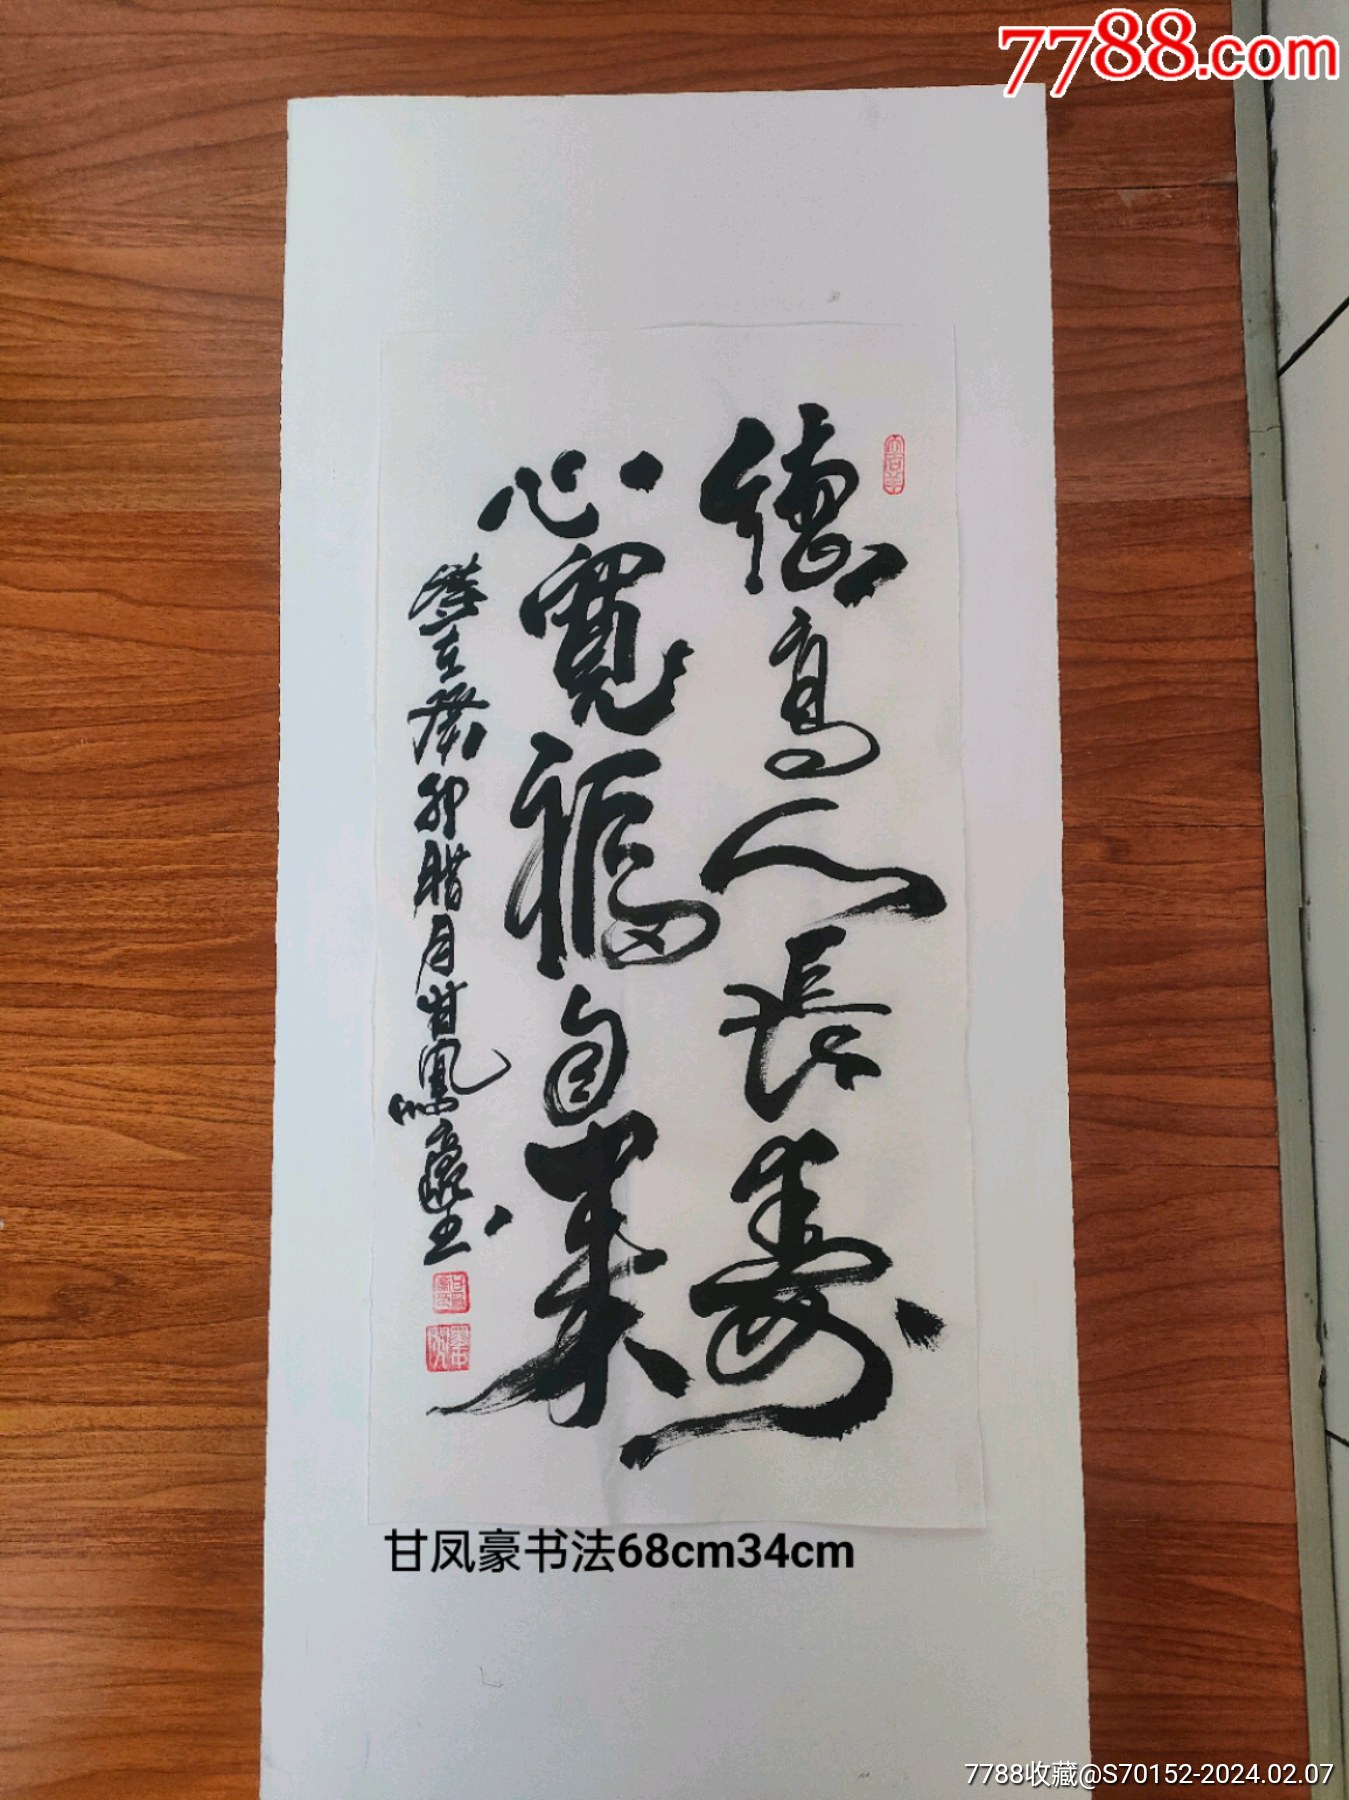 7788.com
德高人长寿
心宽福自来
岁在癸卯腊月甘凤豪书
甘凤豪书法68cm34cm
7788收藏@S70152-2024.02.07